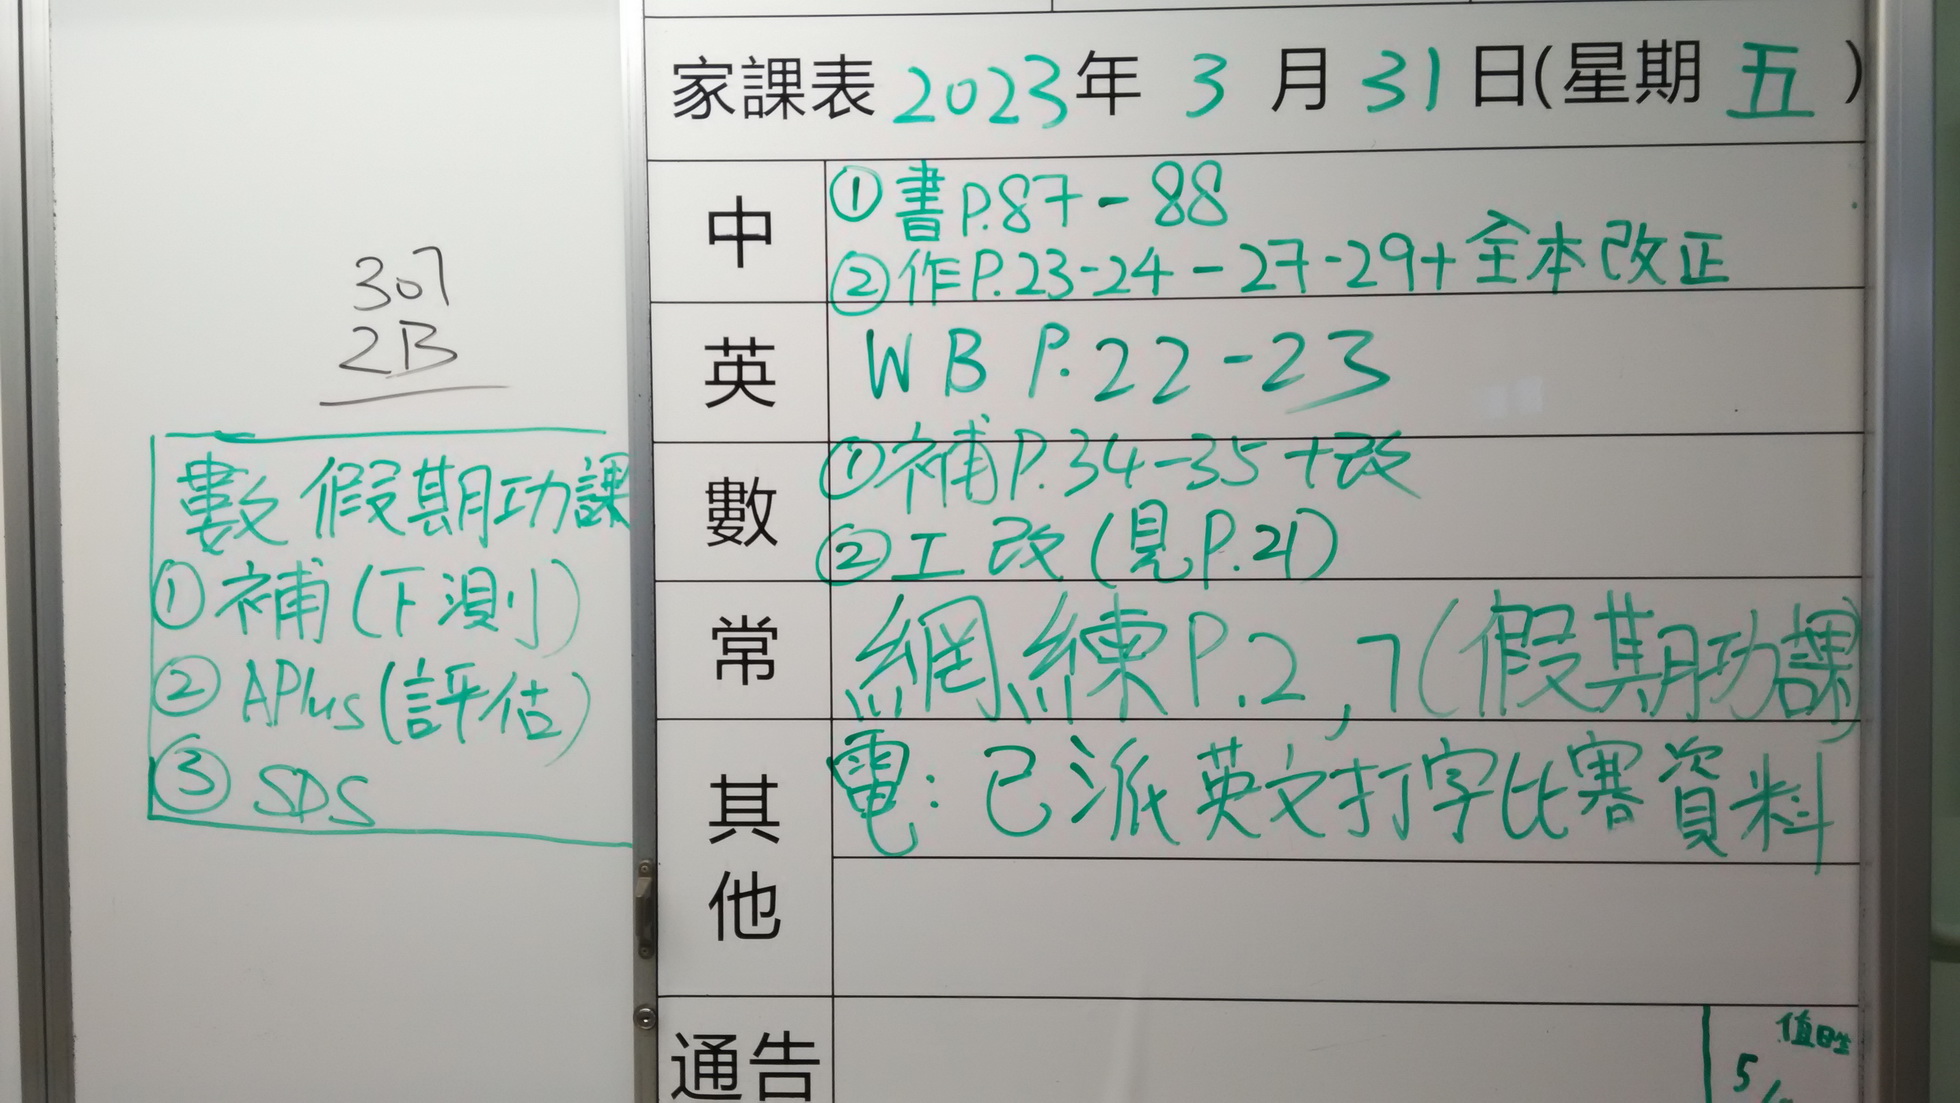 307
2B
數 假期功課
① 補 (下測)
② APlus (評估)
③ SDS
家課表 2023年 3 月 31 日(星期 五 )
中
① 書 P.87-88
② 作 P.23-24-27-29+全本改正
英
WB P.22-23
數
① 補 P.34-35+改
② 工 改 (見 P.21)
常
網練 P.2,7(假期功課)
其他
電: 已派英文打字比賽資料
通告
值日生
5/